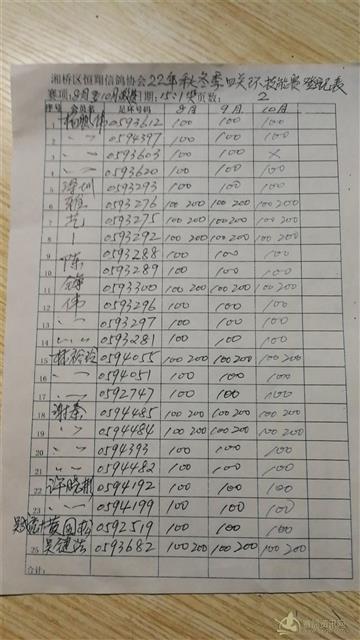 湘桥区恒翔信鸽协会22年秋冬季四关环技能赛登记表
赛项:8月至10月 日期:15:1奖 页数: 2
序号 会员名 足环号码 8月 9月 10月
1 0593612 100 100 100
2 〃 0594397 100 100 100
3 〃 0593603 100 100 ×
4 〃 0593620 100 100 100
5 0593293 100 100 100
6 0593276 100 200 100 200 100 200
7 0593275 100 200 100 200 100 200
8 0593292 100 200 100 200 100 200
9 陈 0593288 100 100 100
10 0593289 100 100 100
11 锋 0593300 100 200 100 200 100 200
12 伟 0593296 100 100 100
13 〃 0593297 100 100 100
14 〃 0593281 100 100 100
15 林 0594055 100 200 100 200 100 200
16 〃 0594051 100 100 100
17 〃 0592747 100 100 100
18 谢 0594485 100 200 100 200 100 200
19 〃 0594484 100 200 100 200 100 200
20 〃 0594393 100 100 100
21 〃 0594482 100 100 100
22 许晓彬 0594192 100 100 100
23 〃 0594199 100 100 100
黄国松 0592519 100 100 100
25 吴健 0593682 100 200 100 200 100 200
合计: